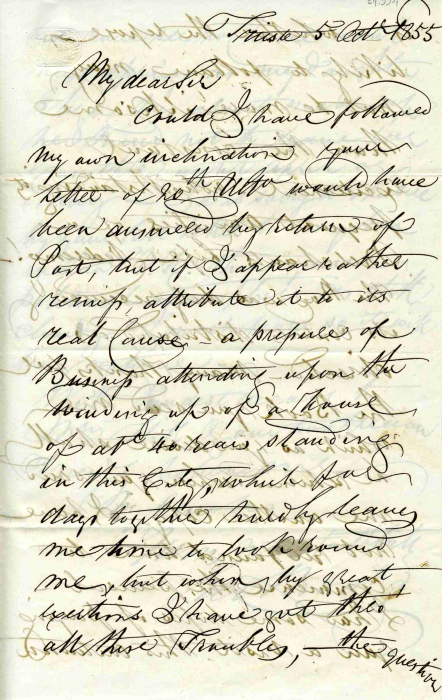 Trieste 5 Octr 1855
My dear Sir
Could I have followed
my own inclination your
letter of 20th Ulto would have
been answered by return of
Post, but if I appear rather
remiss, attribute it to its
real Cause - a pressure of
Business attending upon the
Winding up of a house
of abt 40 years standing
in this City, which for
days together hardly leaves
me time to look round
me, but when by great
exertions I have got thro'
all these Troubles, - the question